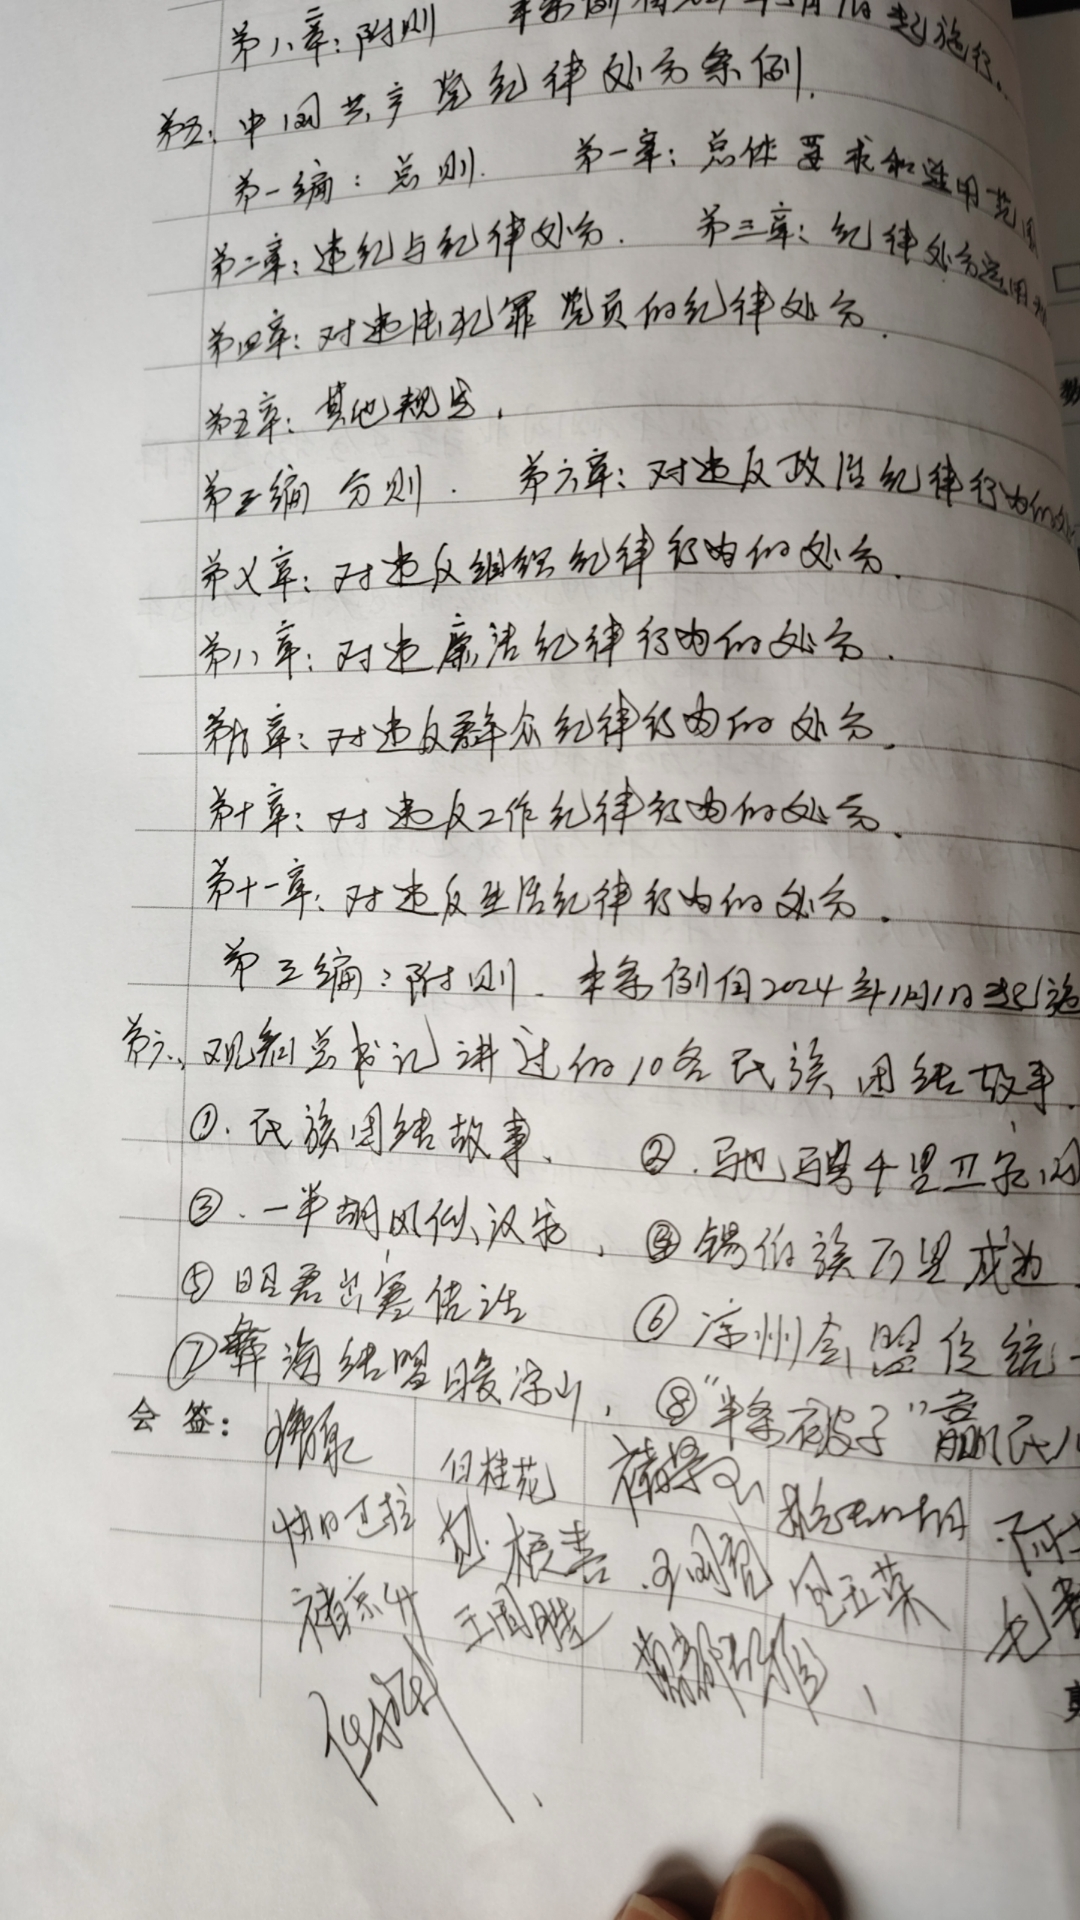 第八章：附则 本条例自 年 月1日起施行。
第五：中国共产党纪律处分条例.
第一编：总则. 第一章：总体要求和适用范围
第二章：违纪与纪律处分. 第三章：纪律处分运用
第四章：对违法犯罪党员的纪律处分.
第五章：其他规定.
第二编 分则. 第六章：对违反政治纪律行为的处
第七章：对违反组织纪律行为的处分.
第八章：对违廉洁纪律行为的处分.
第九章：对违反群众纪律行为的处分.
第十章：对违反工作纪律行为的处分.
第十一章：对违反生活纪律行为的处分.
第三编：附则. 本条例自2024年1月1日起施
第六、观看总书记讲过的10个民族团结故事.
①.民族团结故事、 ②.驰骋千里卫家国
③.一半胡风似汉家、 ④锡伯族万里戍边
⑤昭君出塞佳话 ⑥凉州会盟促统一
⑦彝海结盟暖凉山， ⑧"半条被子"赢民心
会签：
白桂花
王国胜